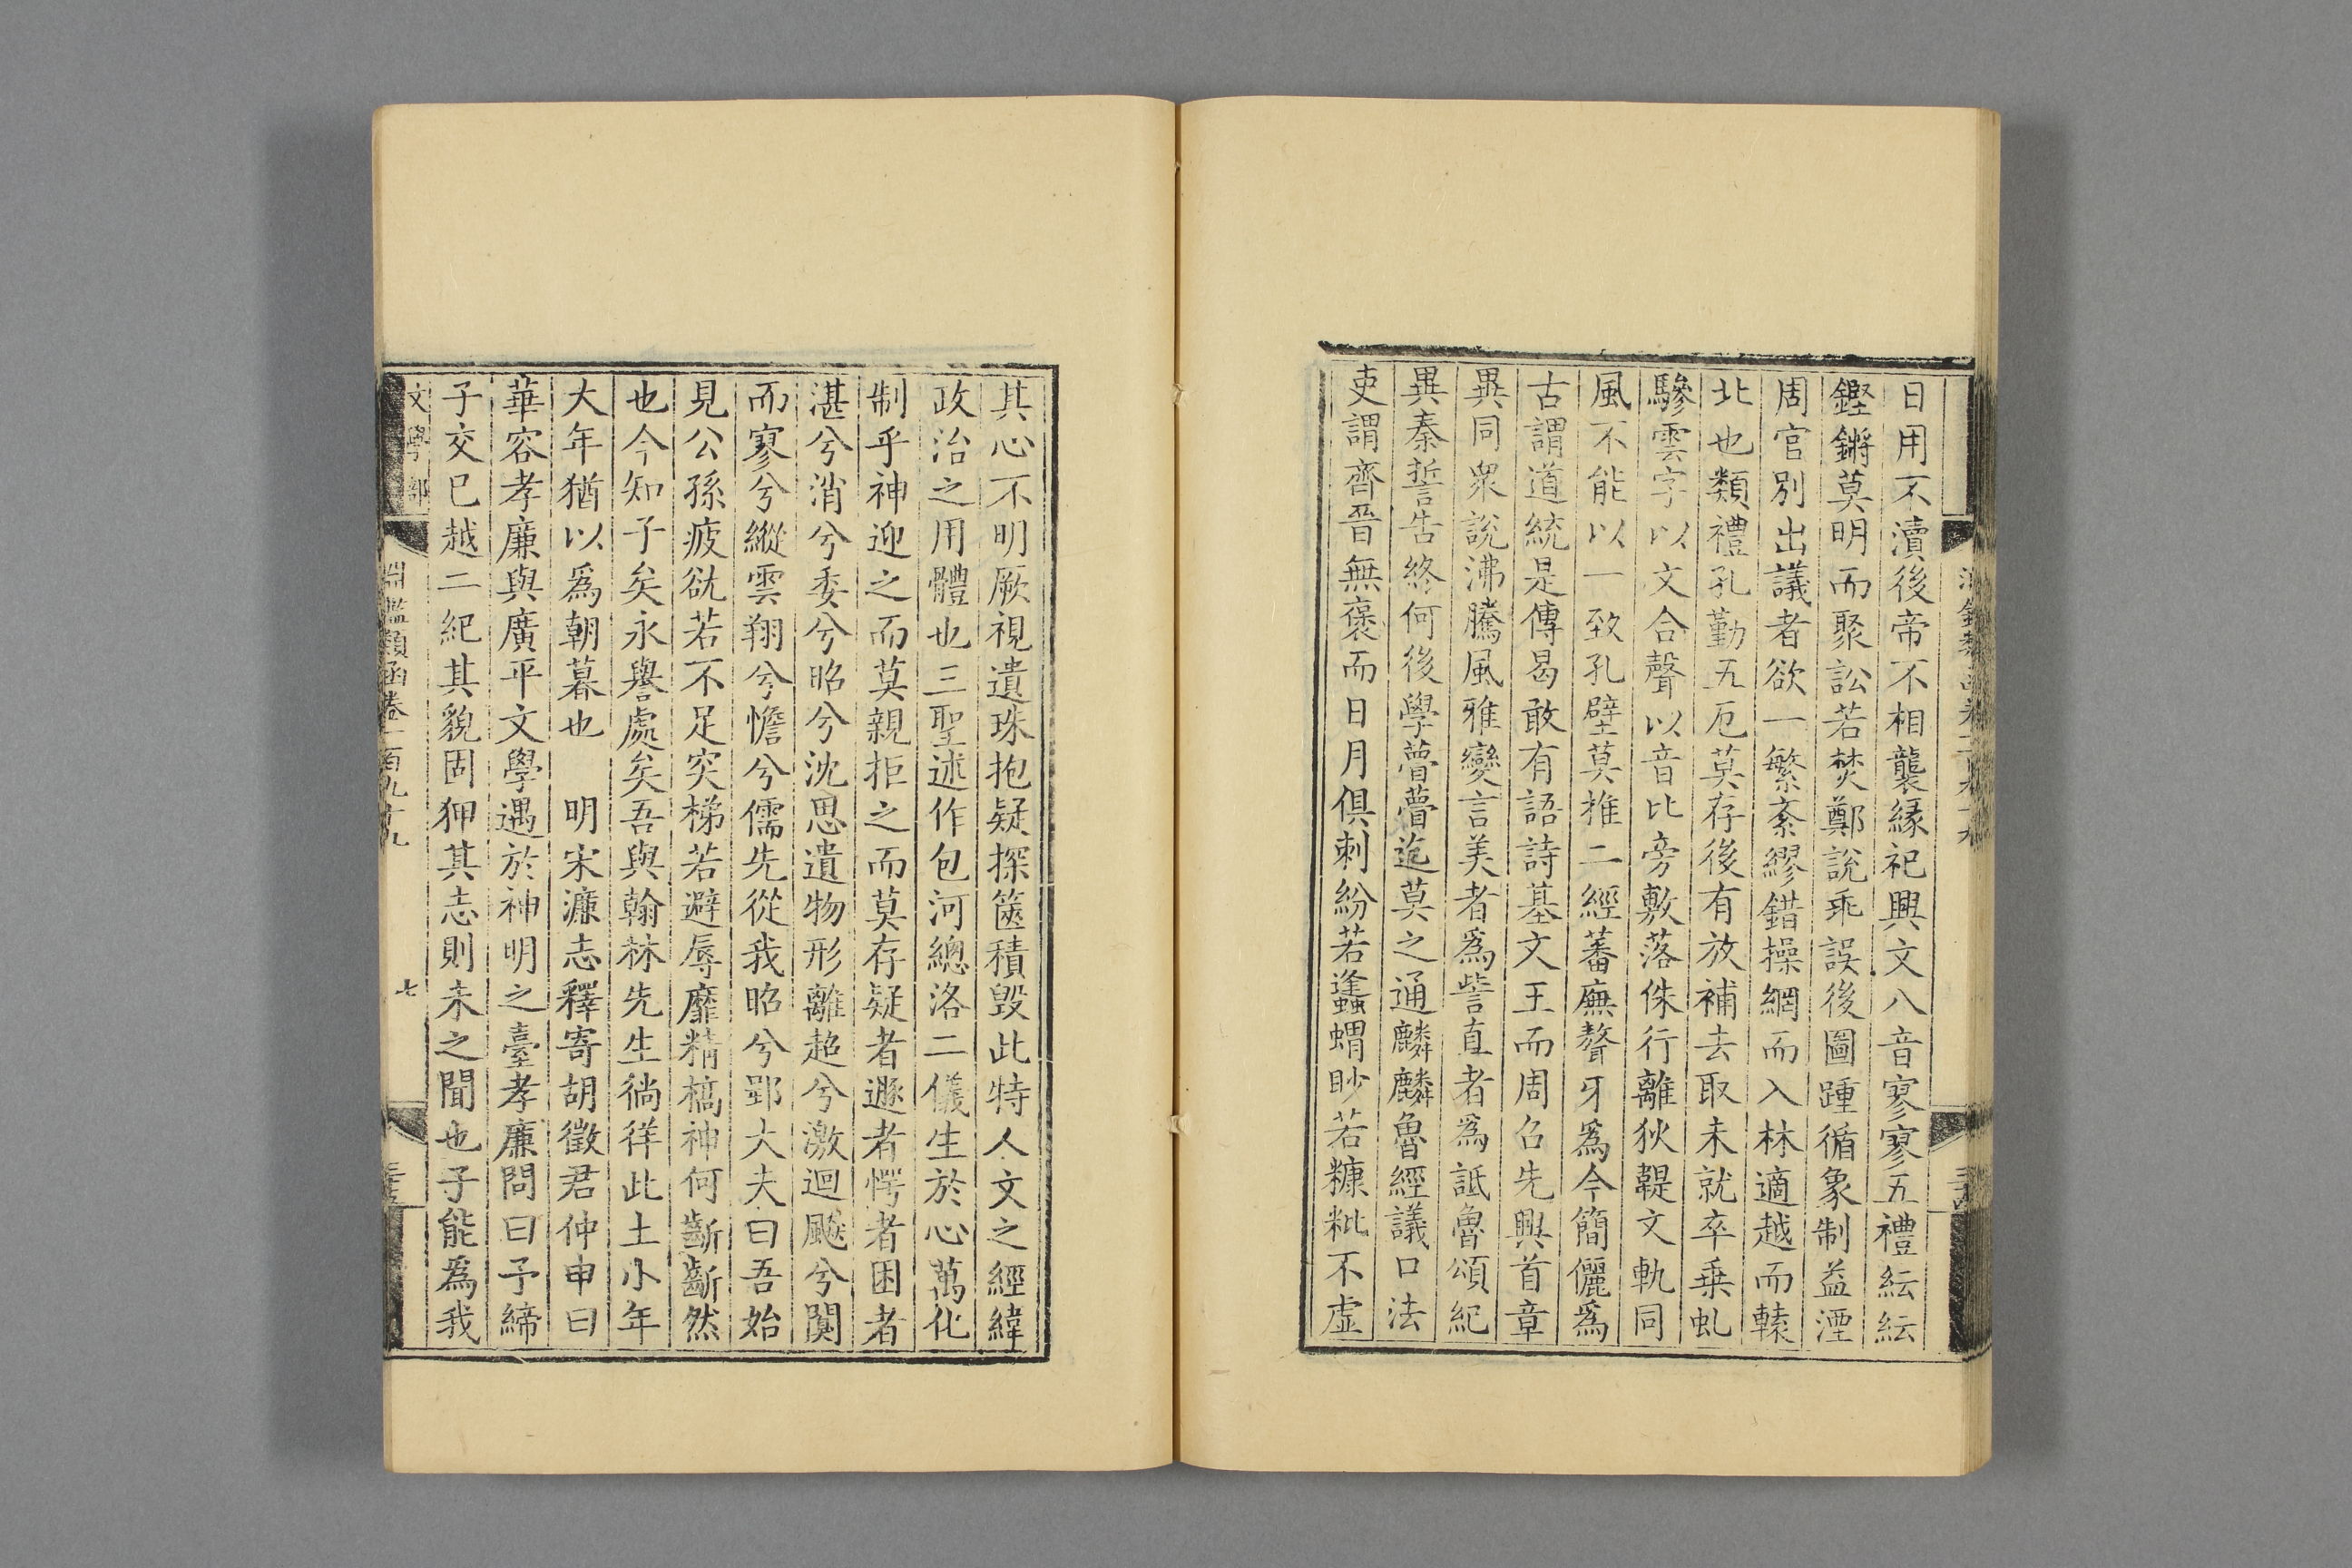 日用不瀆後帝不相襲緣祀興文八音寥寥五禮紜紜
鏗鏘莫明而聚訟若焚鄭說乖誤後圖踵循象制益湮
周官別出議者欲一繁紊繆錯操網而入林適越而轅
北也類禮孔勤五厄莫存後有放補去取未就卒乗虬
驂雲字以文合聲以音比旁敷落侏行離狄鞮文軌同
風不能以一致孔壁莫推二經蕃廡聱牙爲今簡儷爲
古謂道統是傳曷敢有語詩基文王而周召先興首章
異同衆說沸騰風雅變言美者爲訾直者爲詆魯頌紀
異秦誓告終何後學瞢瞢迄莫之通麟麟魯經議口法
吏謂齊晉無褒而日月俱刺紛若蠭蝟眇若糠粃不虛
其心不明厥視遺珠抱疑探篋積毀此特人文之經緯
政治之用體也三聖述作包河總洛二儀生於心萬化
制乎神迎之而莫親拒之而莫存疑者遯者愕者困者
湛兮消兮委兮昭兮沈思遺物形離超兮激迴飈兮闃
而寥兮縱雲翔兮憺兮儒先從我昭兮郢大夫曰吾始
見公孫疲欿若不足突梯若避辱靡精槁神何齗齗然
也今知子矣永譽處矣吾與翰林先生徜徉此土小年
大年猶以爲朝暮也　明宋濂志釋寄胡徵君仲申曰
華容孝廉與廣平文學遇於神明之臺孝廉問曰予締
子交已越二紀其貌固狎其志則未之聞也子能爲我
文學部
淵鑑類函卷一百九十九
七